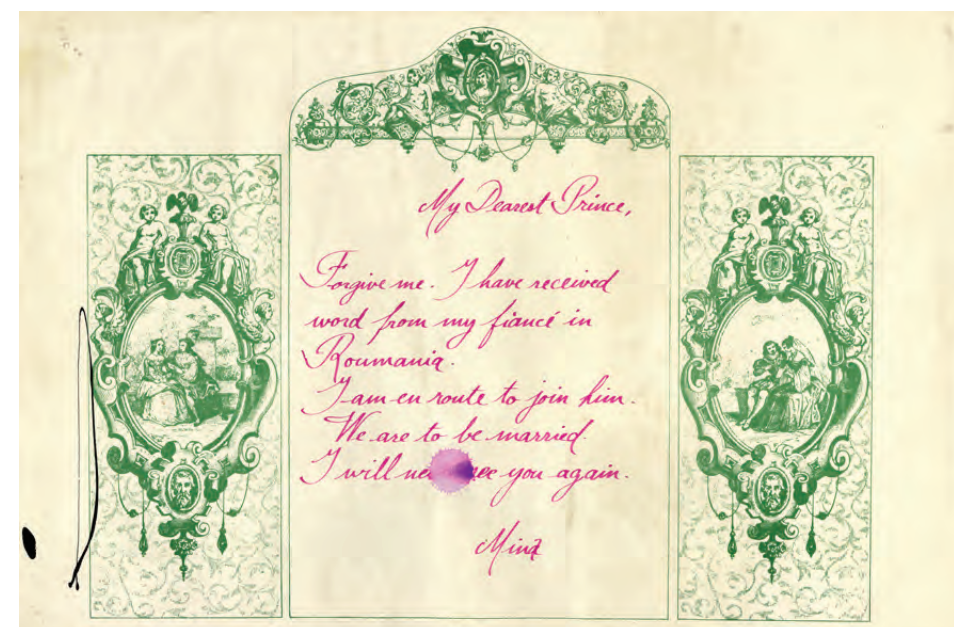 My Dearest Prince,
Forgive me. I have received
word from my fiancé in
Roumania.
I am en route to join him.
We are to be married.
I will see you again.
Mina